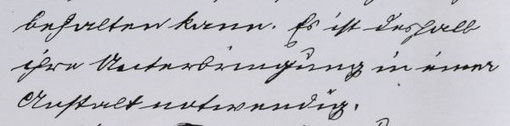 behalten kann. Es ist deshalb
ihre Unterbringung in einer
Anstalt notwendig.